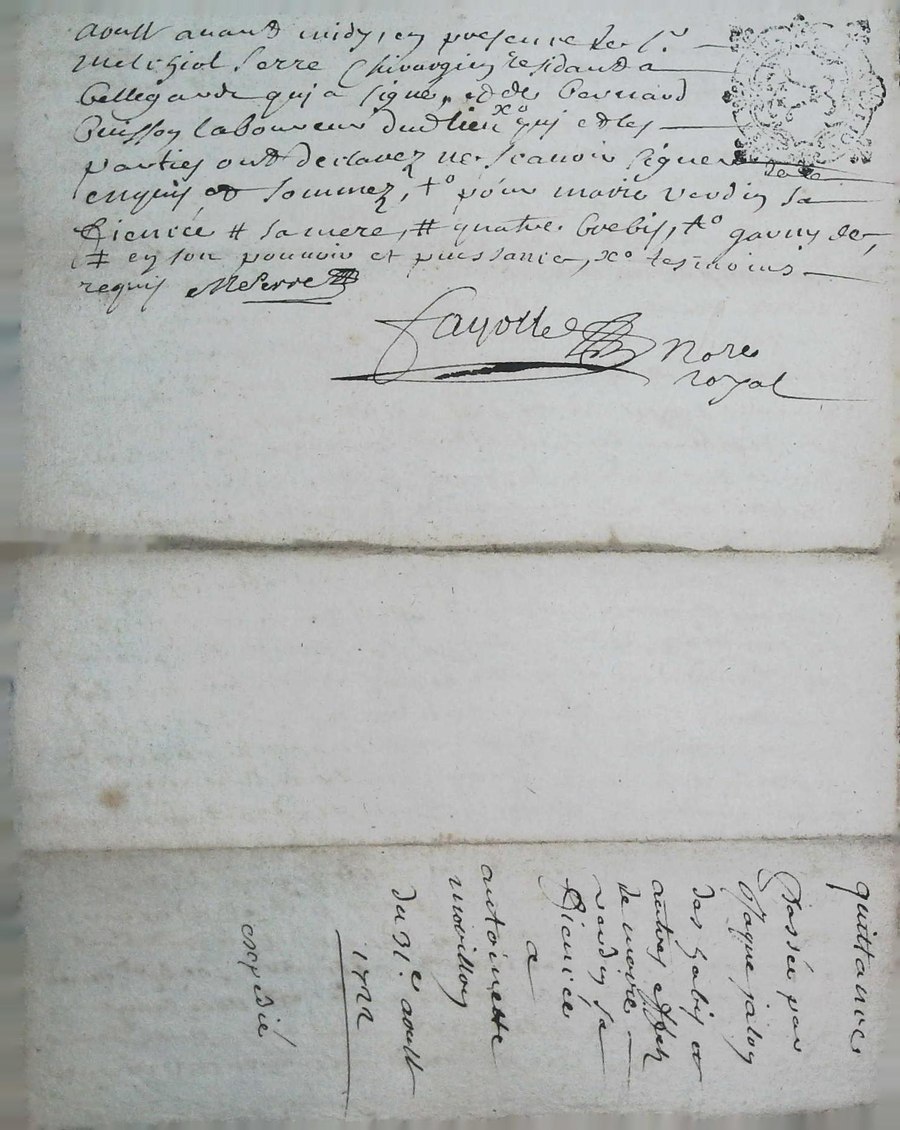 aoust avand midy, en presence de Sr
melchiol Serre Chirurgien residand a
bellegarde qui a signé, et de bernard
buisson laboureur dud lieu xo qui et les
parties ont declarez ne scavoir signer de ce
enquis et sommez, +o pour marie verdin sa
fiencée # sa mere, # quatre brebis, +o garny de,
# en son pouvoir et puissance, xo tesmoins
requis MeSerre
fayolle Nore
royal
quittance
passée par
Jaque jalon
des habis et
autres effeh
de marie
verdin sa
fiencée
a
antoinette
morillon
du 31e aoust
1722
expédié